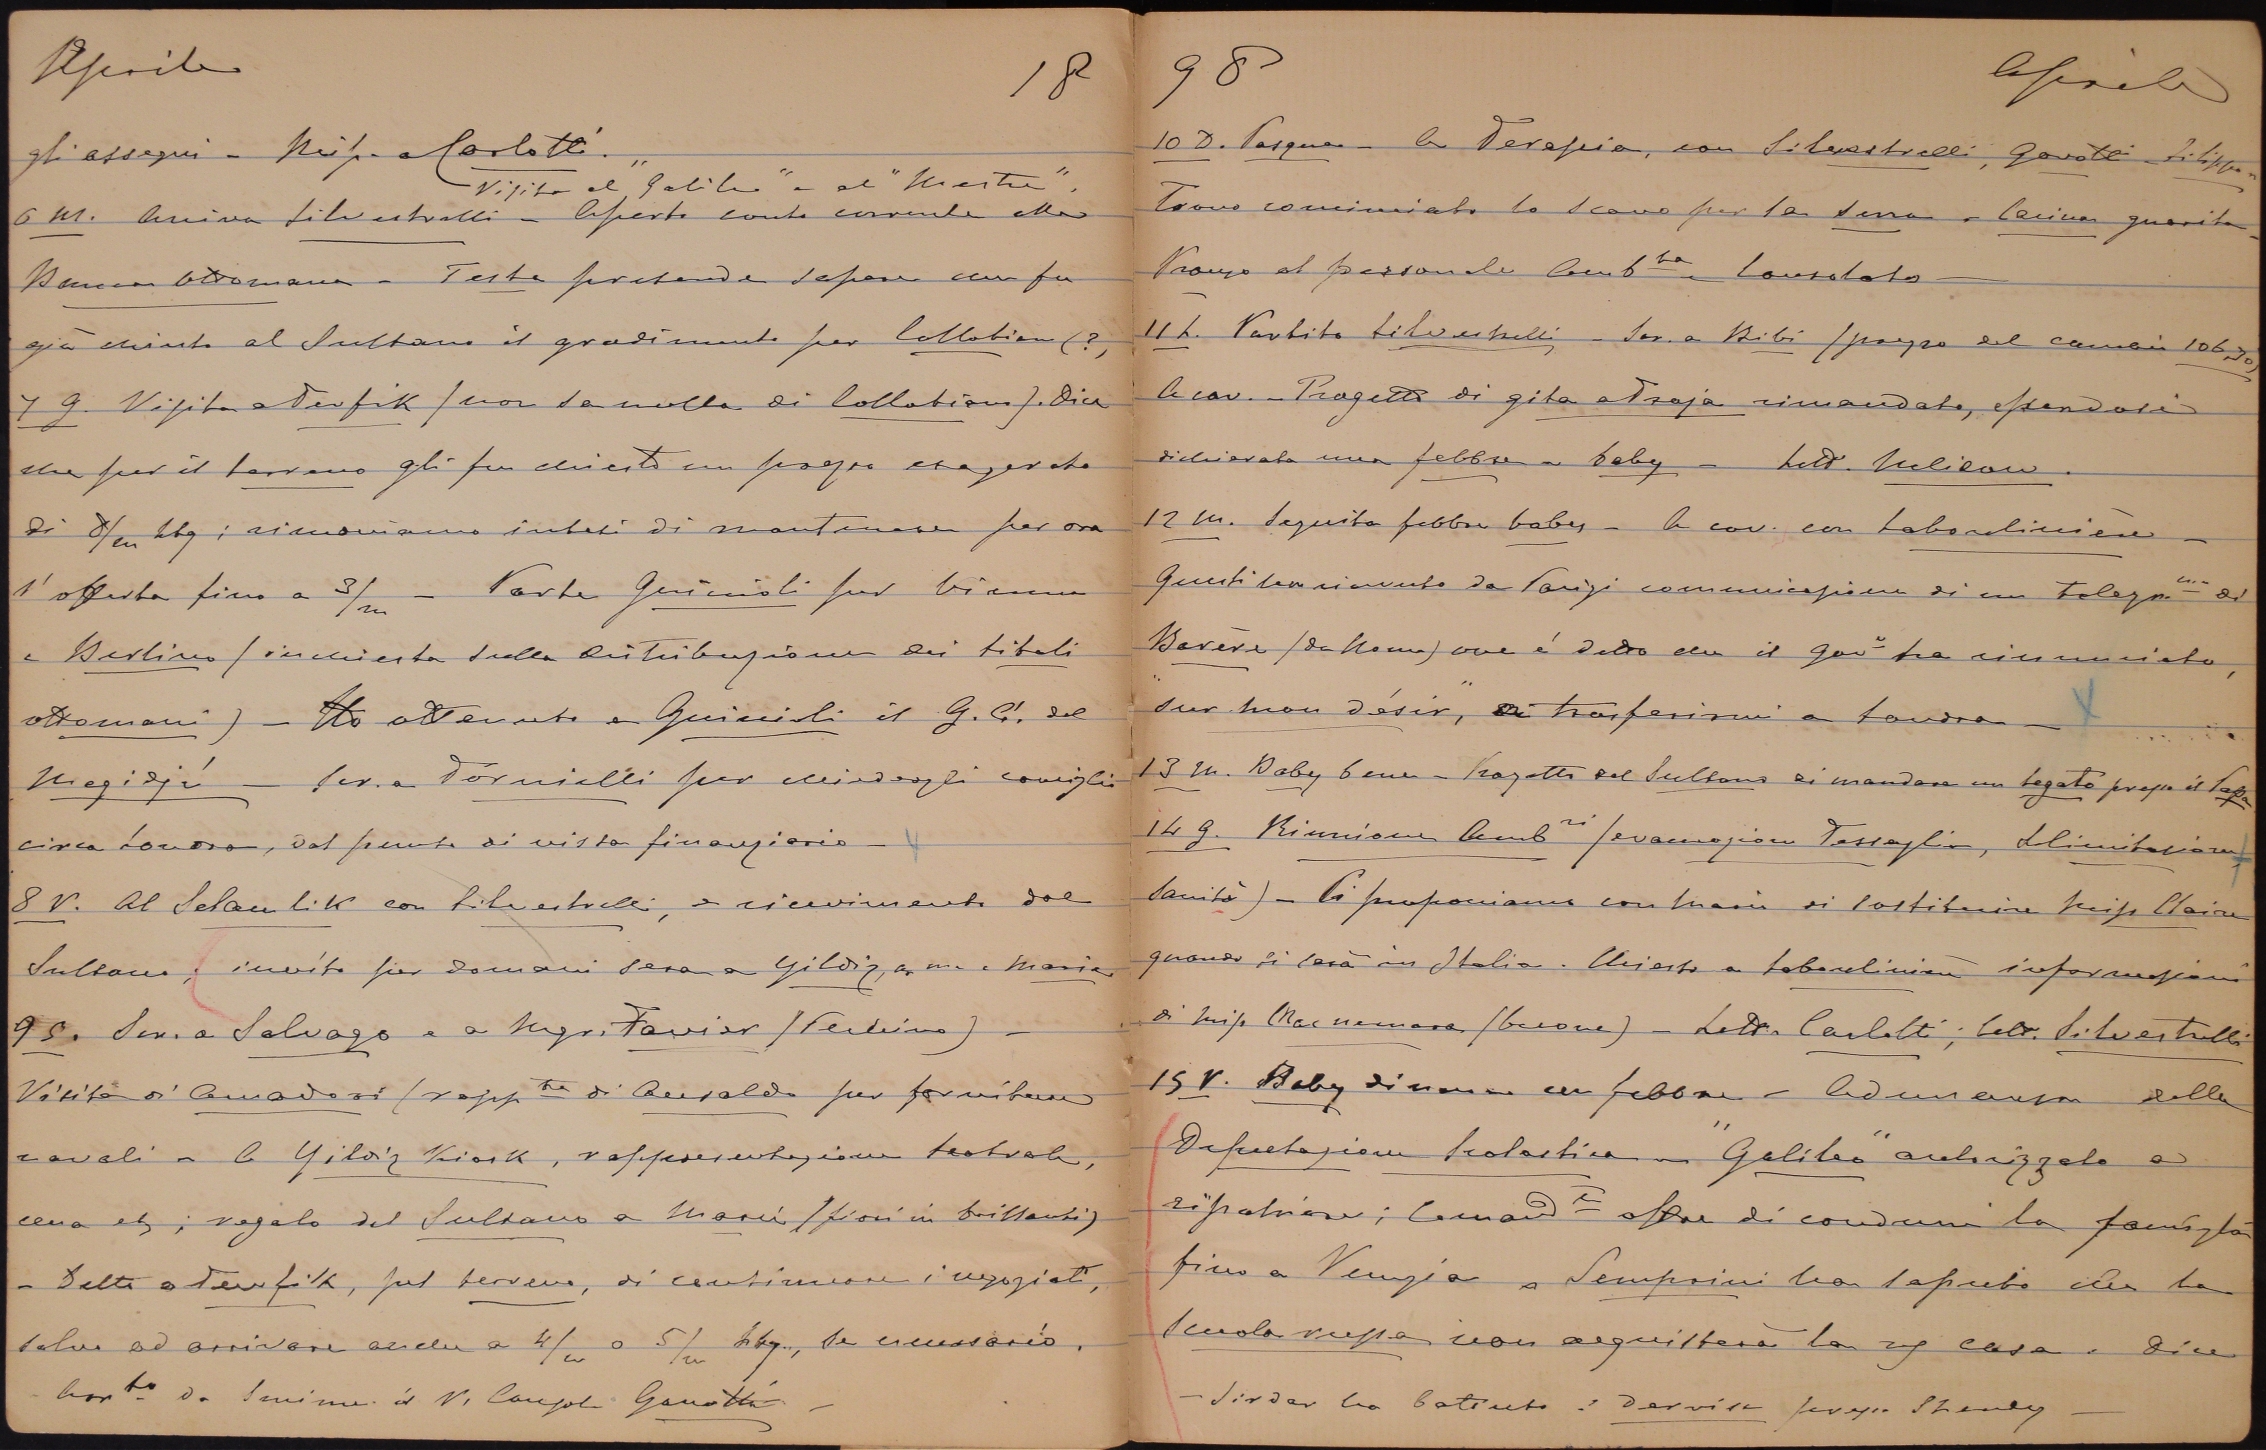 Aprile 18
gli assegni - Risp. a Carlotti.
Visita al "Galileo" e al "Mestre".
6 M. Arriva Silvestrelli - Aperto conto corrente alla
Banca Ottomana - Testa pretende sapere che fu
già chiesto al Sultano il gradimento per Collobiano (?)
7 G. Visita a Tewfik (non sa nulla di Collobiano). Dice
che per il terreno gli fu chiesto un prezzo esagerato
di 8/m Ltq; rimaniamo intesi di mantenere per ora
l'offerta fino a 3/m - Parte Guicioli per Vienna
e Berlino (inchiesta sulla distribuzione dei titoli
ottomani) - Ho ottenuto a Guicioli il G. C. del
Megidjé - Scr. a Tornielli per chiedergli consiglio
circa Londra, dal punto di vista finanziario -
8 V. Al Selamlik con Silvestrelli, e ricevimento dal
Sultano; invito per domani sera a Yildiz, a me e Maria
9 S. Scr. a Salvago e a Mgr. Favier (Pechino) -
Visita di Amadori (rapp.te di Ansaldo per forniture
navali - A Yildiz Kiosk, rappresentazione teatrale,
cena etc; regalo del Sultano a Maria (fiori in brillanti)
- Detto a Tewfik, pel terreno, di continuare i negoziati,
salvo ad arrivare anche a 4/m o 5/m Ltq., se necessario.
Arr.to da Smirne il V. Console Gavotti -
98 Aprile
10 D. Pasqua - A Terapia, con Silvestrelli, Gavotti
Trovo cominciato lo scavo per la serra - guarita -
Pranzo al personale Amb.ta e Consolato -
11 L. Partito Silvestrelli - Scr. a Bibi (prezzo del 106,30)
A cav. - Progetto di gita a Troja rimandato, essendosi
dichiarata una febbre a baby - Lett.
12 M. Seguita febbre baby - A cav. con Laboulinière -
Questi ha ricevuto da Parigi comunicazione di un telegr.ma di
Barère (da Roma) ove é detto che il Gov.o ha rinunciato,
"sur mon désir", di trasferirmi a Londra -
13 M. Baby bene - Progetto del Sultano di mandare un legato presso il Papa
14 G. Riunione Amb.ri (evacuazione Tessaglia, delimitazione,
sanità) - Ci proponiamo con Maria di sostituire Miss Claire
quando si sarà in Italia. Chiesto a Laboulinière informazioni
di Miss Macnamara (buone) - Lett. Carlotti; lett. Silvestrelli
15 V. Baby di nuovo con febbre - Adunanza della
Deputazione Scolastica - "Galileo" autorizzato a
ripatriare; Comand.te offre di condurmi la famiglia
fino a Venezia - Semprini ha saputo che la
Scuola russa non acquisterà la ns casa. dice
- Sirdar ha battuto i Dervish presso Shendy -